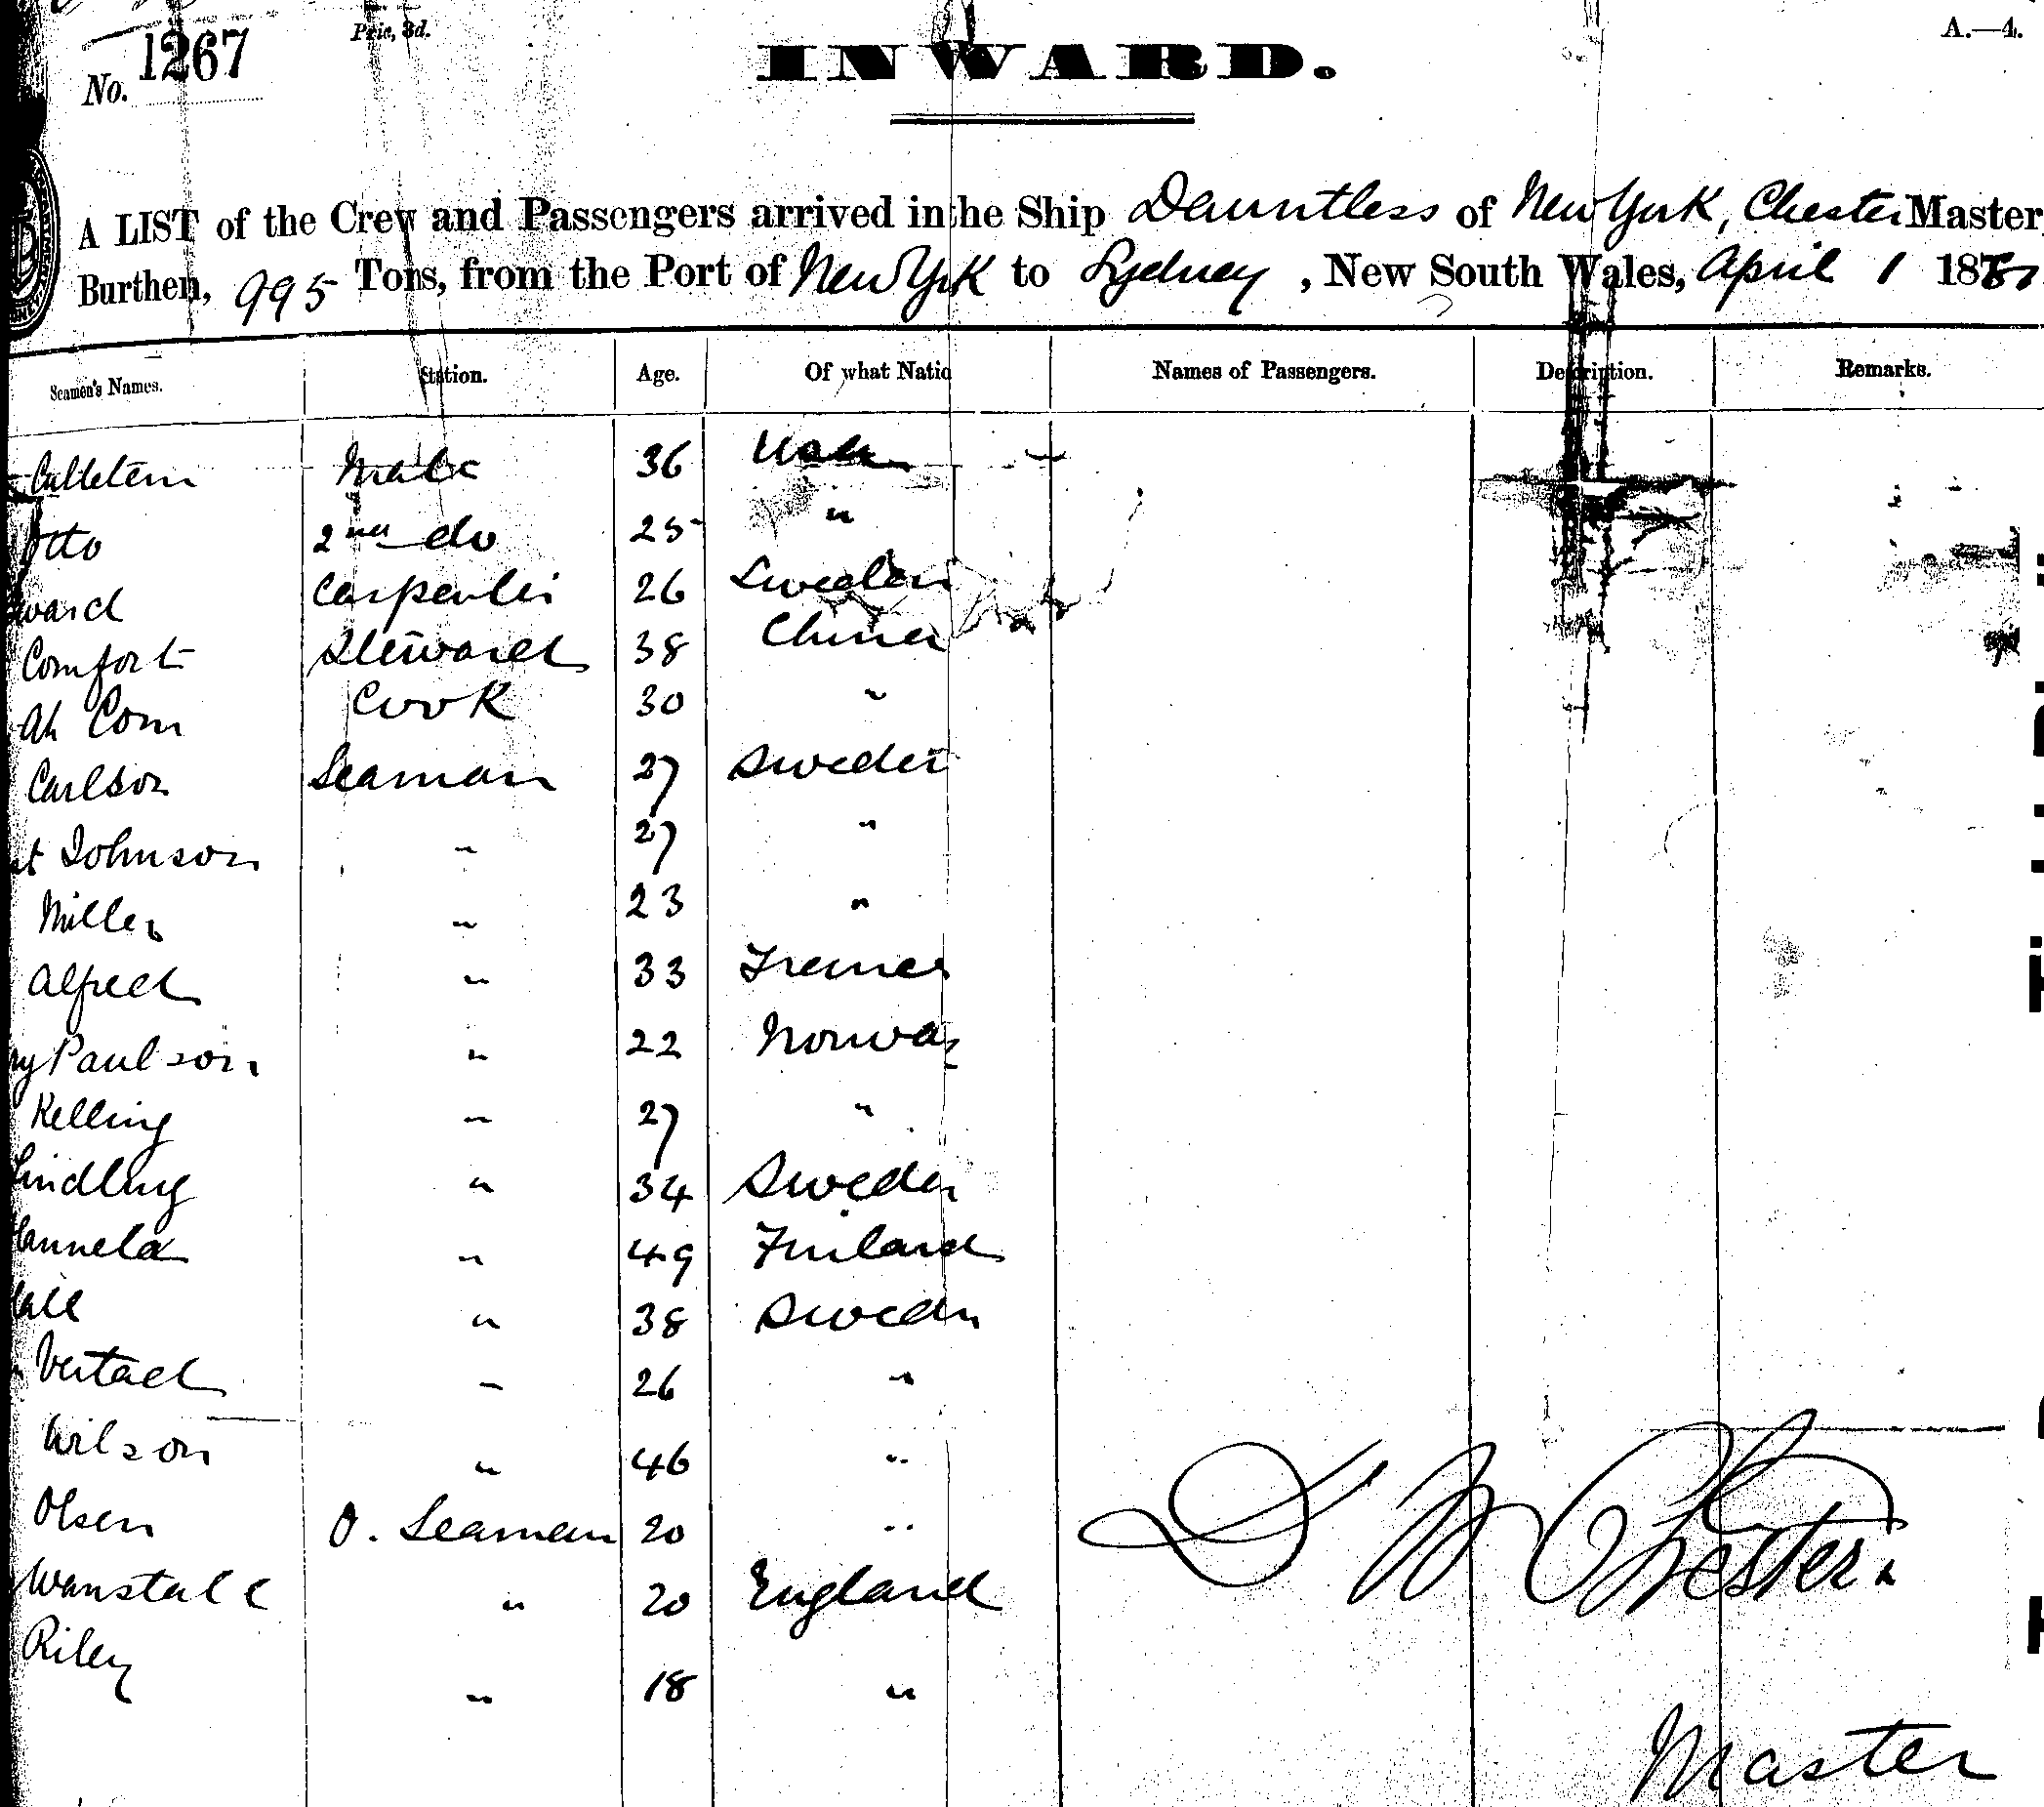 No. 1267
Pric, 3d.
INWARD.
A.—4.
A LIST of the Crew and Passengers arrived in the Ship Dauntless of New York, Chester Master,
Burthen, 995 Tons, from the Port of New York to Sydney, New South Wales, April 1 18
Seamen's Names. Station. Age. Of what Natio Names of Passengers. Description. Remarks.
Mate 36 Usa
Otto 2nd do 25 "
ward Carpenter 26 Sweden
Comfort Steward 38 China
Ah Com Cook 30 "
Carlson Seaman 27 Sweden
Johnson " 27 "
Miller " 23 "
Alfred " 33 France
Paulson " 22 Norway
Kelling " 27 "
" 34 Sweden
" 49 Finland
" 38 Sweden
" 26 "
Wilson " 46 "
Olsen O. Seaman 20 "
Wanstall " 20 England
Riley " 18 "
Chester
Master